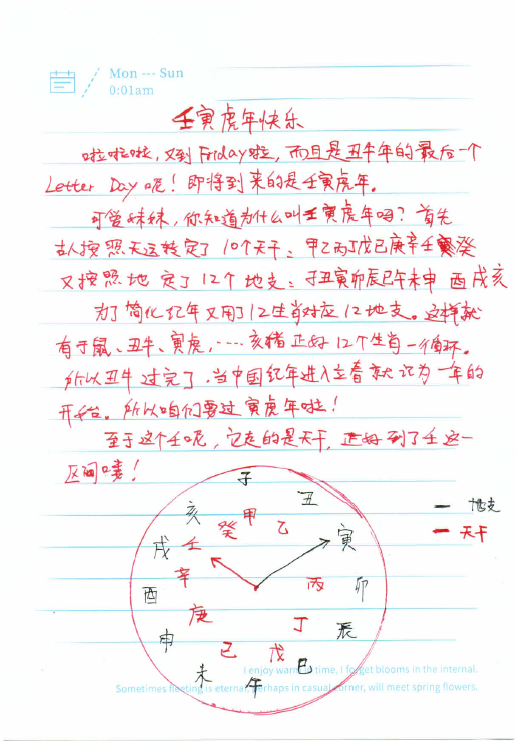 Mon --- Sun
0:01am
壬寅虎年快乐
啦啦啦，又到Friday啦，而且是丑牛年的最后一个
Letter Day呢！即将到来的是壬寅虎年。
可莹妹妹，你知道为什么叫壬寅虎年吗？首先
古人按照天运转定了10个天干：甲乙丙丁戊己庚辛壬癸
又按照地定了12个地支：子丑寅卯辰巳午未申酉戌亥
为了简化纪年又用了12生肖对应12地支。这样就
有子鼠、丑牛、寅虎，····亥猪正好12个生肖一个循环。
所以丑牛过完了，当中国纪年进入立春就记为一年的
开始。所以咱们要过寅虎年啦！
至于这个壬呢，它走的是天干，正好到了壬这一
区间喽！
子
亥 丑
癸 甲 乙
戌 壬 寅
地支
天干
辛 丙 卯
酉
庚 丁 辰
申
己 戊 巳
未 午
I enjoy warm time, I forget blooms in the internal.
Sometimes fleeting is eternal, perhaps in casual corner, will meet spring flowers.